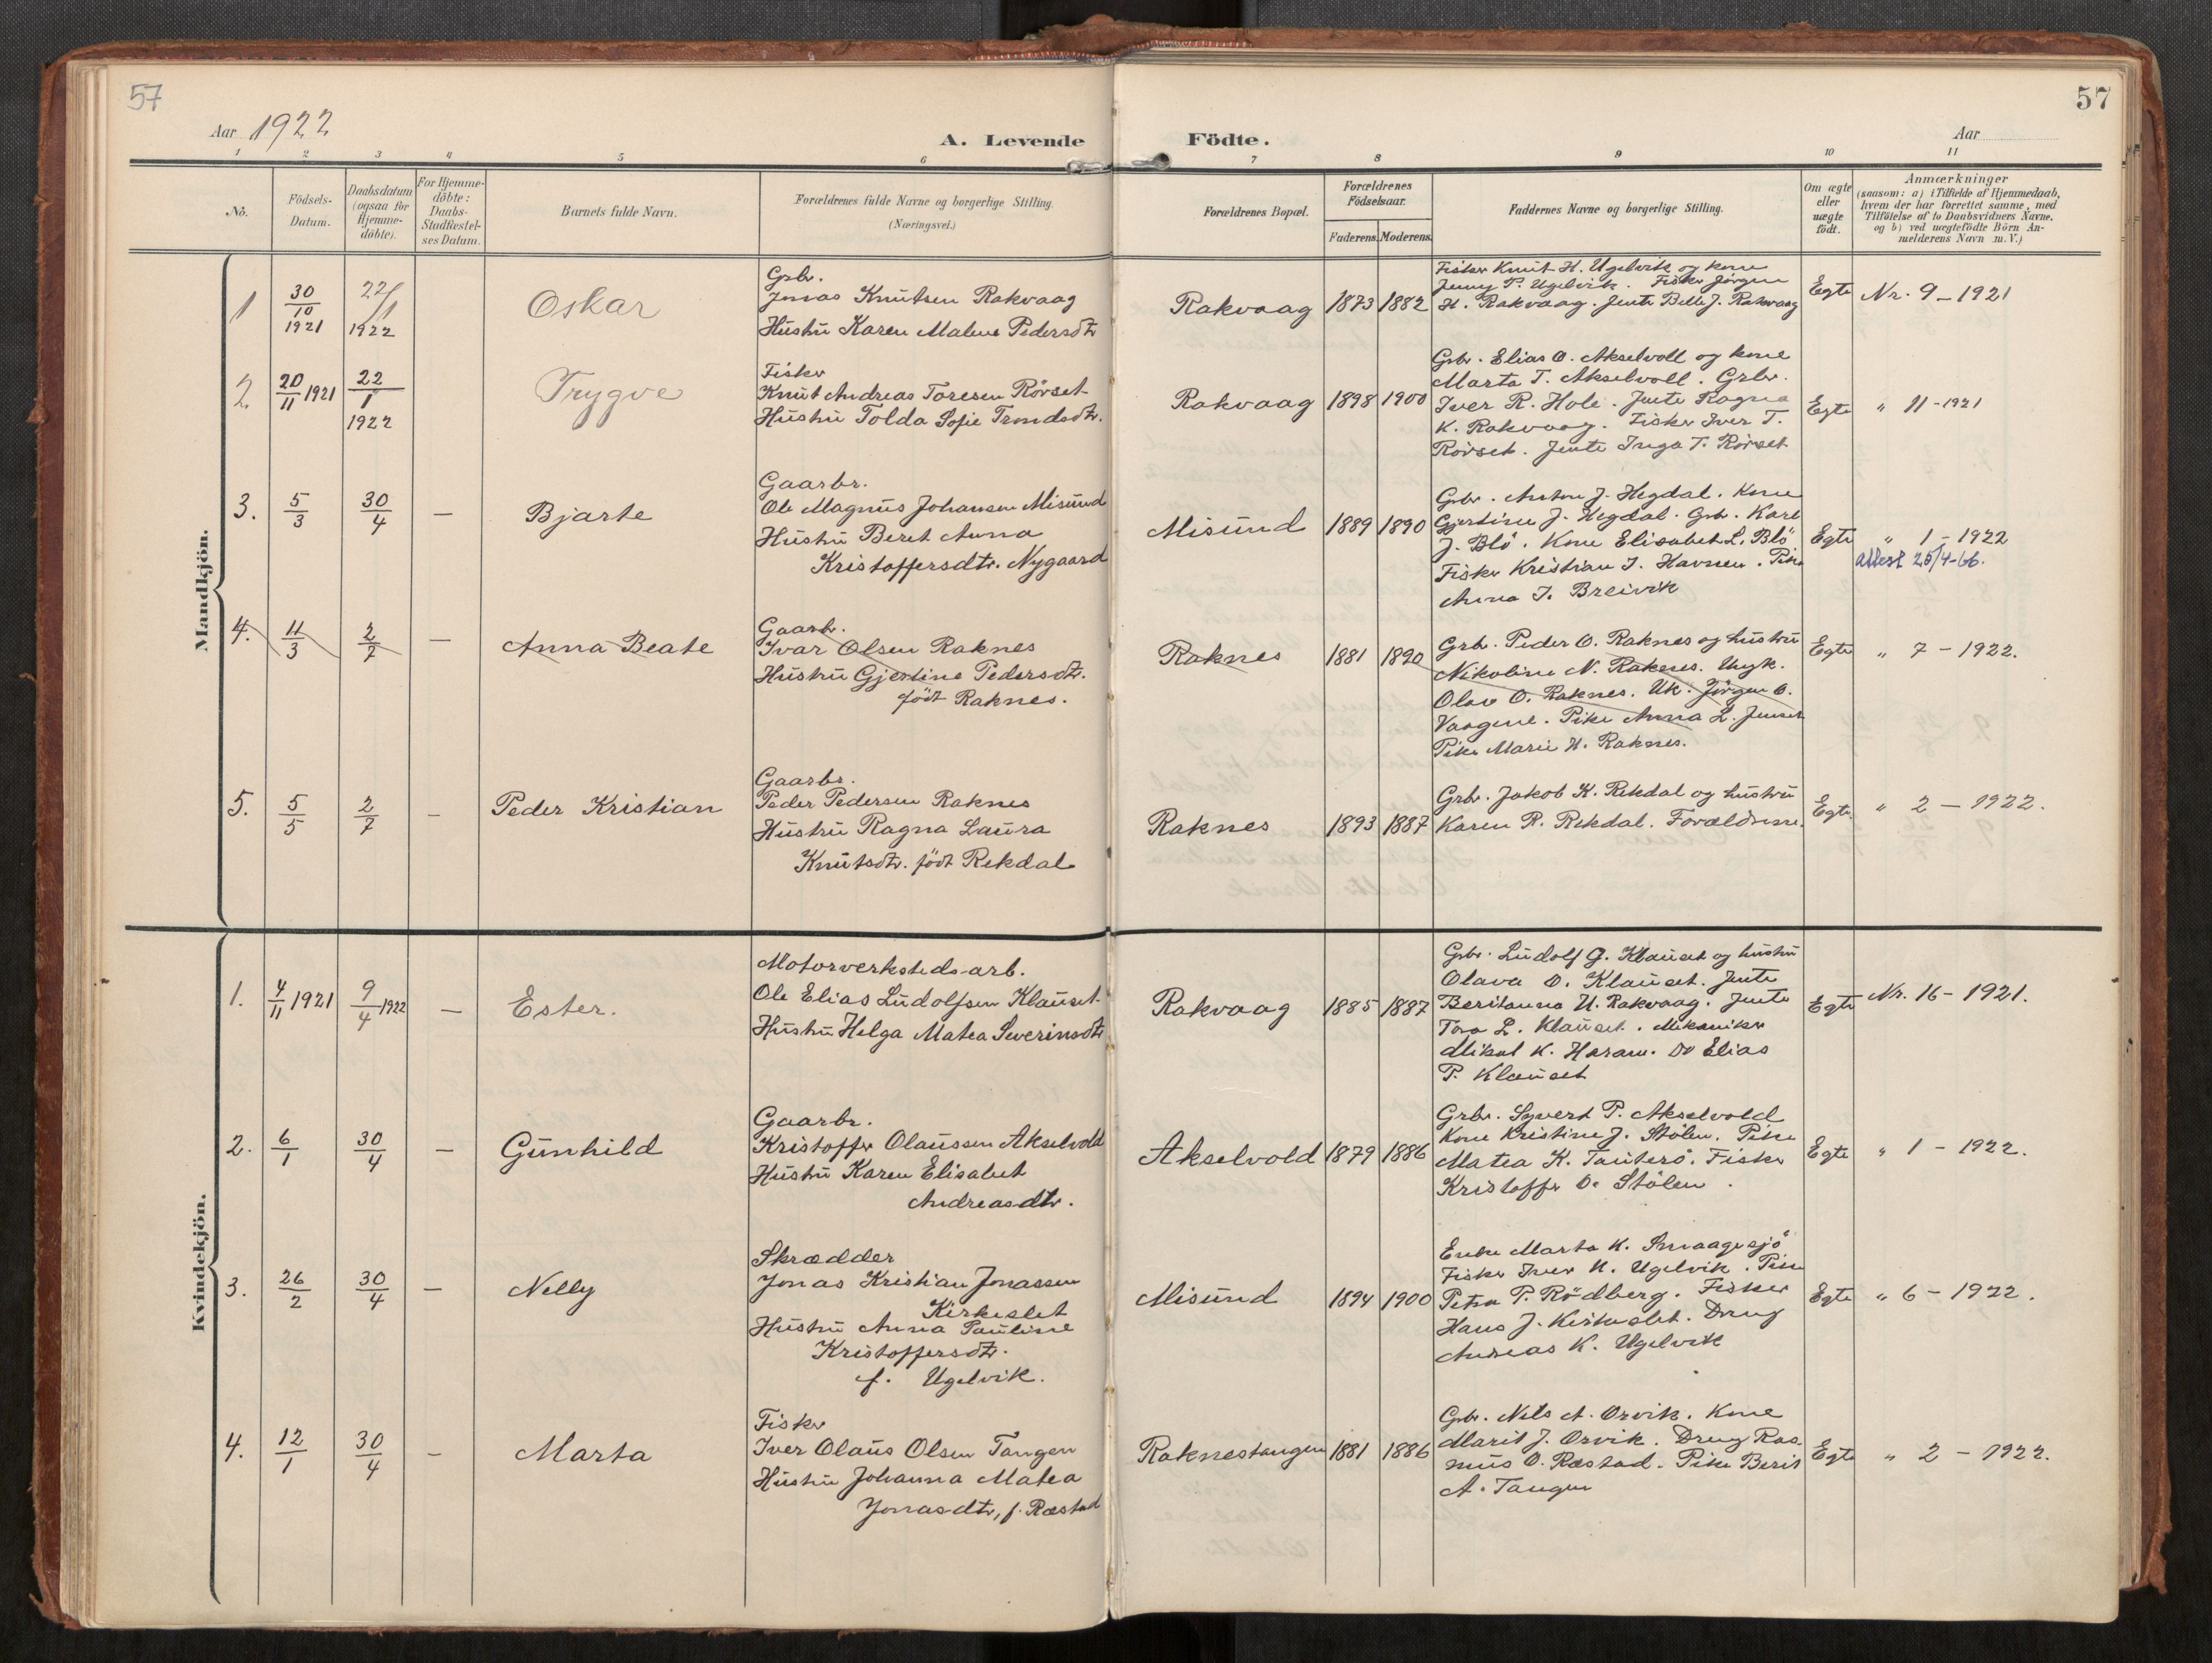 57
57
Aar 1922
A. Levende Födte.
Aar
1 2 3 4 5 6 7 8 9 10 11
No.
Födsels-
Datum.
Daabsdatum
(ogsaa for
Hjemme-
döbte).
For Hjemme-
döbte:
Daabs-
Stadfæstel-
ses Datum.
Barnets fulde Navn.
Forældrenes fulde Navne og borgerlige Stilling.
(Næringsvei.)
Forældrenes Bopæl.
Forældrenes
Fødselsaar.
Faderens. Moderens.
Faddernes Navne og borgerlige Stilling.
Om ægte
eller
uægte
födt.
Anmærkninger
(saasom: a) i Tilfælde af Hjemmedaab,
hvem der har forrettet samme, med
Tilföielse af to Daabsvidners Navne,
og b) ved uægtefödte Börn An-
melderens Navn m. V.)
Mandkjön.
1
30/10
1921
22/1
1922
Oskar
Grbr.
Jonas Knutsen Rakvaag
Hustru Karen Malene Pedersdtr
Rakvaag
1873
1882
Fisker Knut H. Ugelvik og kone
Jenny P. Ugelvik. Fisker Jørgen
H. Rakvaag. Jente Belle J. Rakvaag
Egte
Nr. 9 - 1921
2
20/11 1921
22/1
1922
Trygve
Fisker
Knut Andreas Toresen Rörset
Hustru Tolda Sofie Trondsdtr.
Rakvaag
1898
1900
Grbr. Elias O. Akselvoll og kone
Marta T. Akselvoll. Grbr.
Iver R. Hole. Jente Ragna
K. Rakvaag. Fisker Iver T.
Rörset. Jente Inga T. Rörset
Egte
" 11 - 1921
3.
5/3
30/4
—
Bjarte
Gaarbr.
Ole Magnus Johansen Misund
Hustru Beret Anna
Kristoffersdtr. Nygaard
Misund
1889
1890
Grbr. Anton J. Hegdal. Kone
Gjertine J. Hegdal. Grb. Karl
J. Blö. Kone Elisabet L. Blö
Fisker Kristian I. Havnen. Pike
Anna I. Breivik
Egte
" 1 - 1922
attest 25/4-66.
4.
11/3
2/7
—
Anna Beate
Gaarb.
Ivar Olsen Raknes
Hustru Gjertine Pedersdtr.
födt Raknes.
Raknes
1881
1890
Grb. Peder O. Raknes og hustru
Nikoline N. Raknes. Ungk.
Olav O. Raknes. Uk. Jörgen O.
Vaagene. Pike Anna L. Jenset
Pike Marie H. Raknes.
Egte
" 7 - 1922.
5.
5/5
2/7
—
Peder Kristian
Gaarbr.
Peder Pedersen Raknes
Hustru Ragna Laura
Knutsdtr. födt Rekdal
Raknes
1893
1887
Grb. Jakob K. Rekdal og hustru
Karen R. Rekdal. Forældrene.
Egte
" 2 - 1922.
Kvindekjön.
1.
4/11 1921
9/4 1922
—
Ester.
Motorverksteds-arb.
Ole Elias Ludolfsen Klauset
Hustru Helga Matea Severinsdtr
Rakvaag
1885
1887
Grb. Ludolf G. Klauset og hustru
Olava O. Klauset. Jente
Beritanna U. Rakvaag. Jente
Tora L. Klauset. Mekaniker
Mikal K. Haram. Do Elias
P. Klauset
Egte
Nr. 16 - 1921.
2.
6/1
30/4
—
Gunhild
Gaarbr.
Kristoffer Olaussen Akselvold
Hustru Karen Elisabet
Andreasdtr.
Akselvold
1879
1886
Grbr. Syvert P. Akselvold
Kone Kristine J. Stölen. Pike
Matea K. Tauterö. Fisker
Kristoffer O. Stölen.
Egte
" 1 - 1922.
3.
26/2
30/4
—
Nelly
Skrædder
Jonas Kristian Jonassen
Kirkeslet
Hustru Anna Pauline
Kristoffersdtr.
f. Ugelvik.
Misund
1894
1900
Enke Marta K. Smaagesjö
Fisker Iver K. Ugelvik. Pike
Petra P. Rödberg. Fisker
Hans J. Kirkeslet. Dreng
Andreas K. Ugelvik
Egte
" 6 - 1922.
4.
12/1
30/4
—
Marta
Fisker
Iver Olaus Olsen Tangen
Hustru Johanna Matea
Jonasdtr, f. Ræstad
Raknestangen
1881
1886
Grb. Nils A. Orvik. Kone
Marit J. Orvik. Dreng Ras-
mus O. Ræstad. Pike Berit
A. Tangen
Egte
" 2 - 1922.